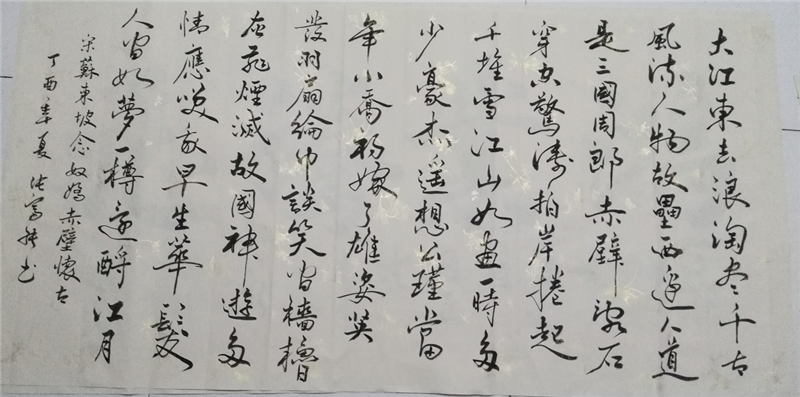 大江東去浪淘尽千古
風流人物故壘西邊人道
是三國周郎赤壁亂石
穿空驚濤拍岸捲起
千堆雪江山如畫一時多
少豪杰遥想公瑾當
年小喬初嫁了雄姿英
發羽扇綸巾談笑間檣櫓
灰飛煙滅故國神遊多
情應笑我早生華髮
人間如夢一樽還酹江月
宋蘇東坡念奴嬌赤壁懷古
丁酉年夏 書